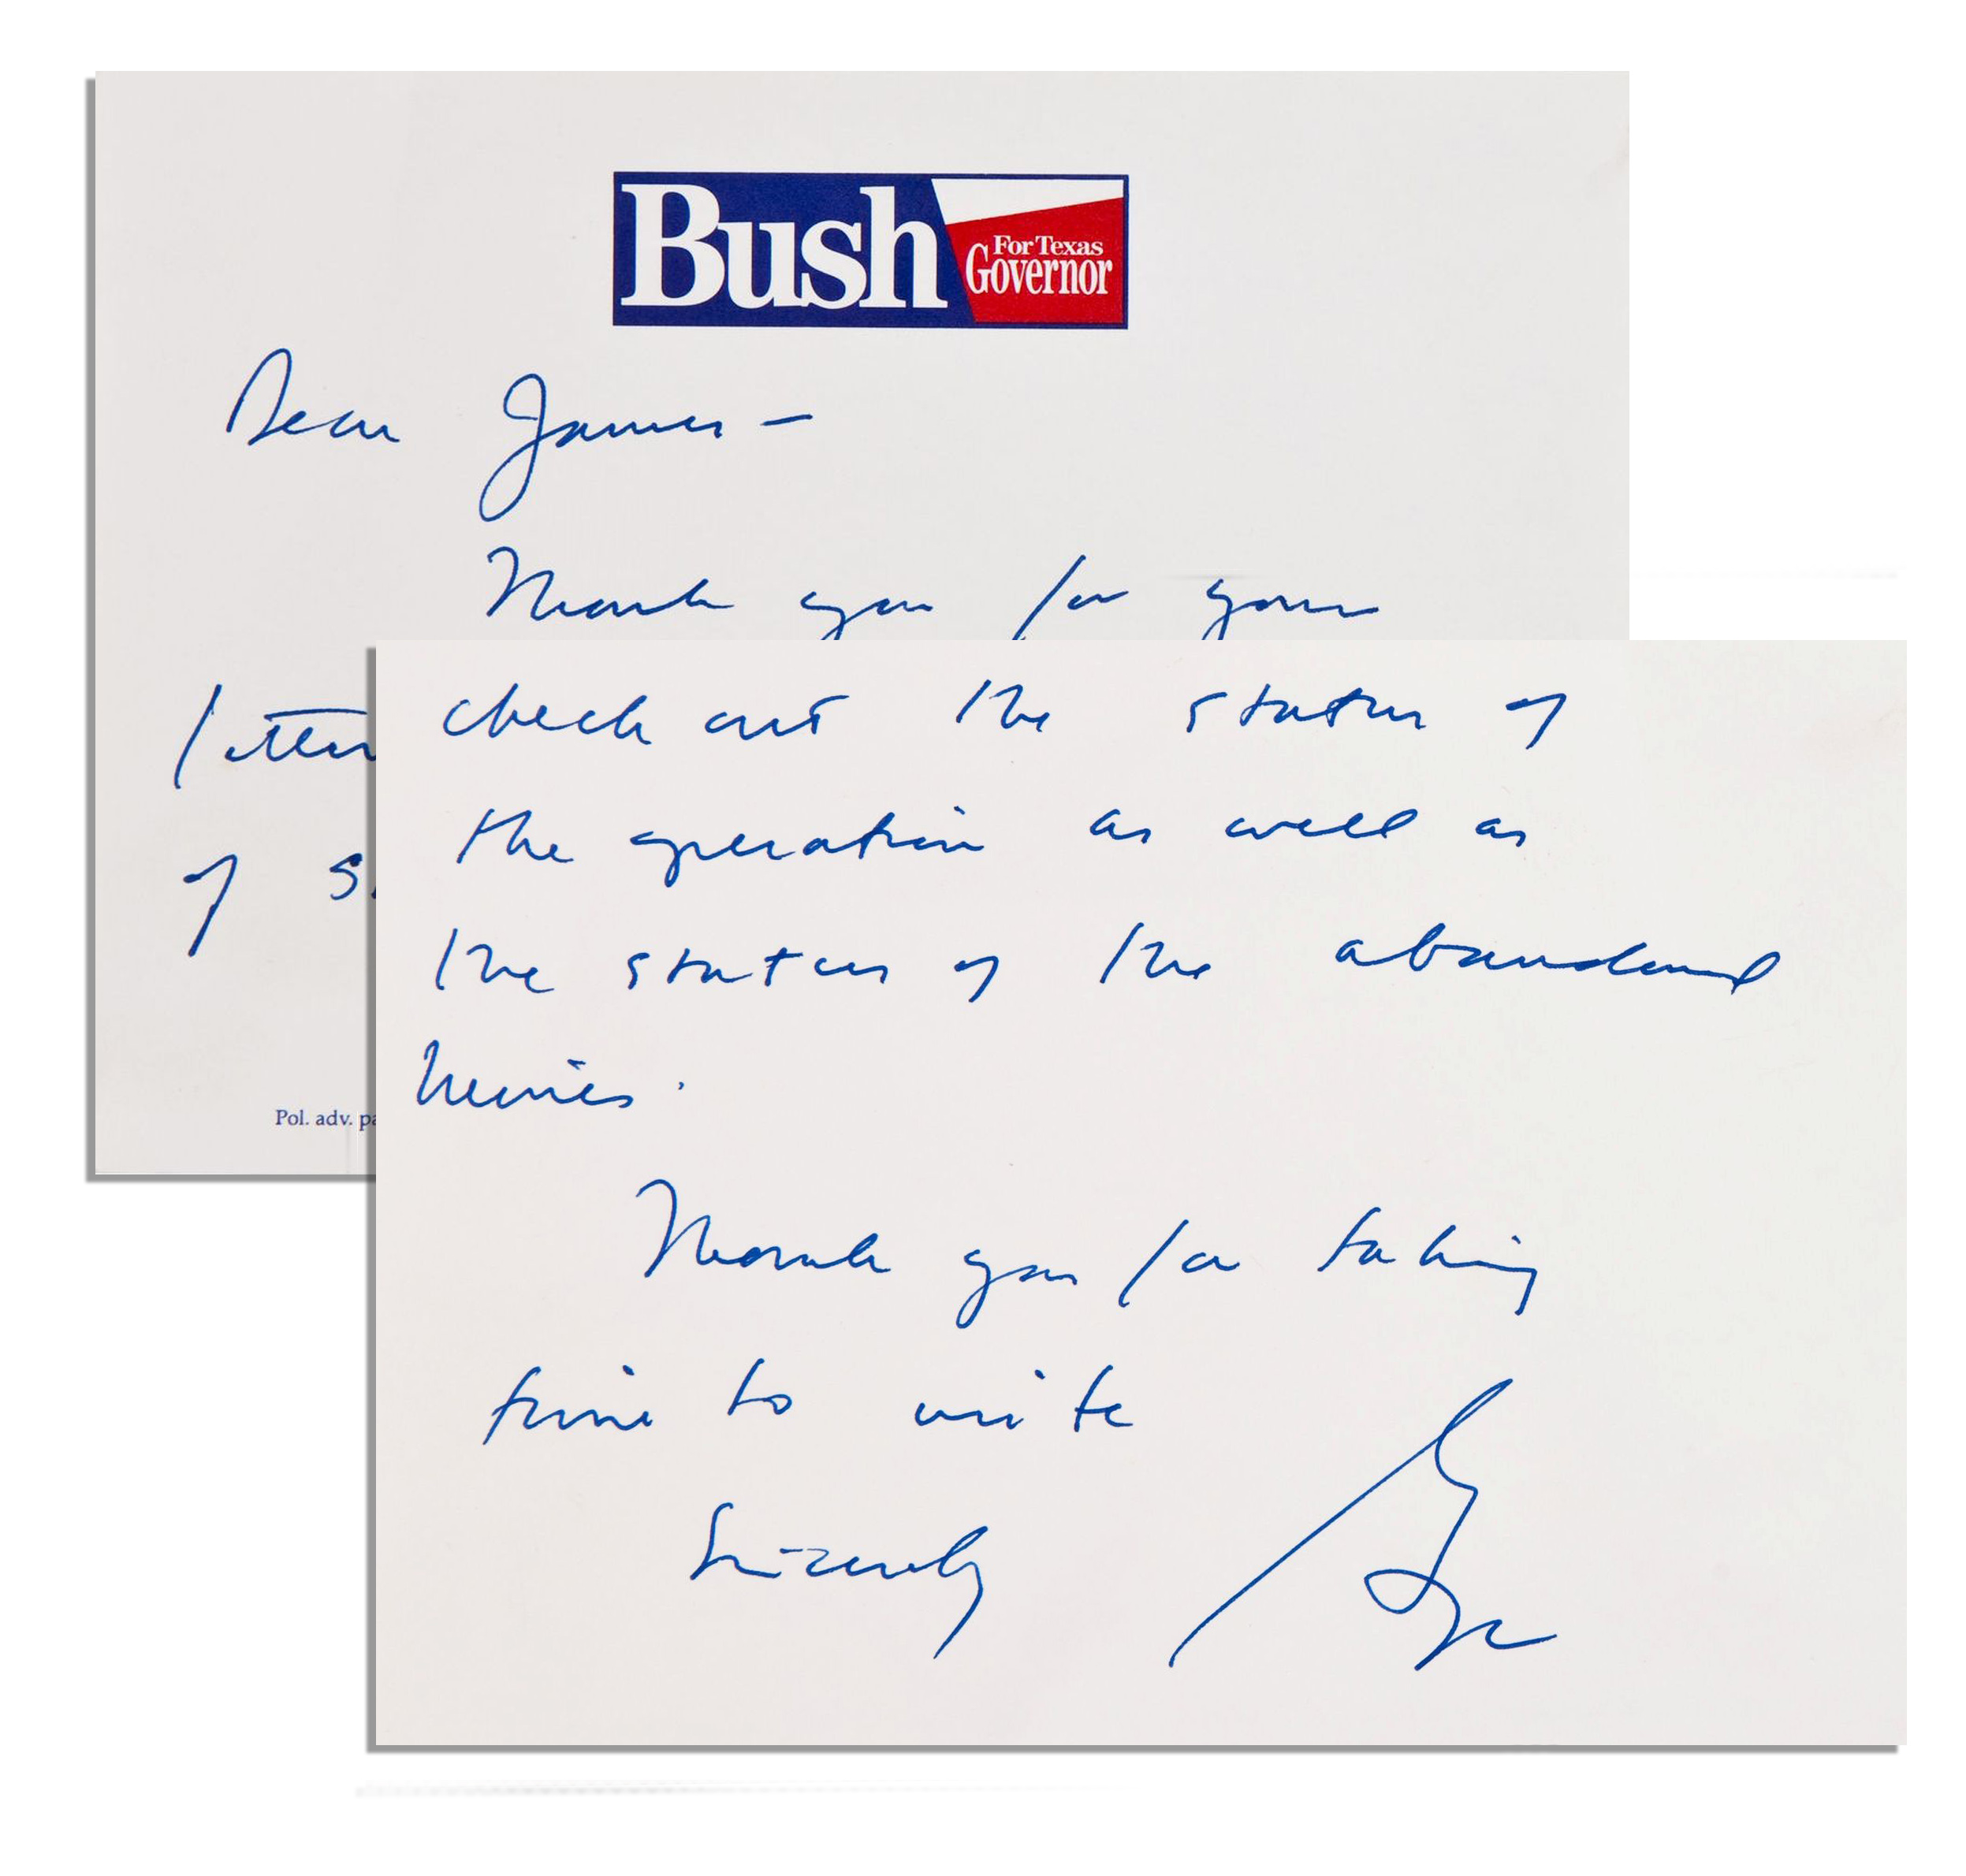 Bush
For Texas
Governor
Dear James —
Thank you for your
letter
of
Pol. adv.
check out the status of
the operation as well as
the status of the abandoned
Thank you for taking
time to write
Sincerely